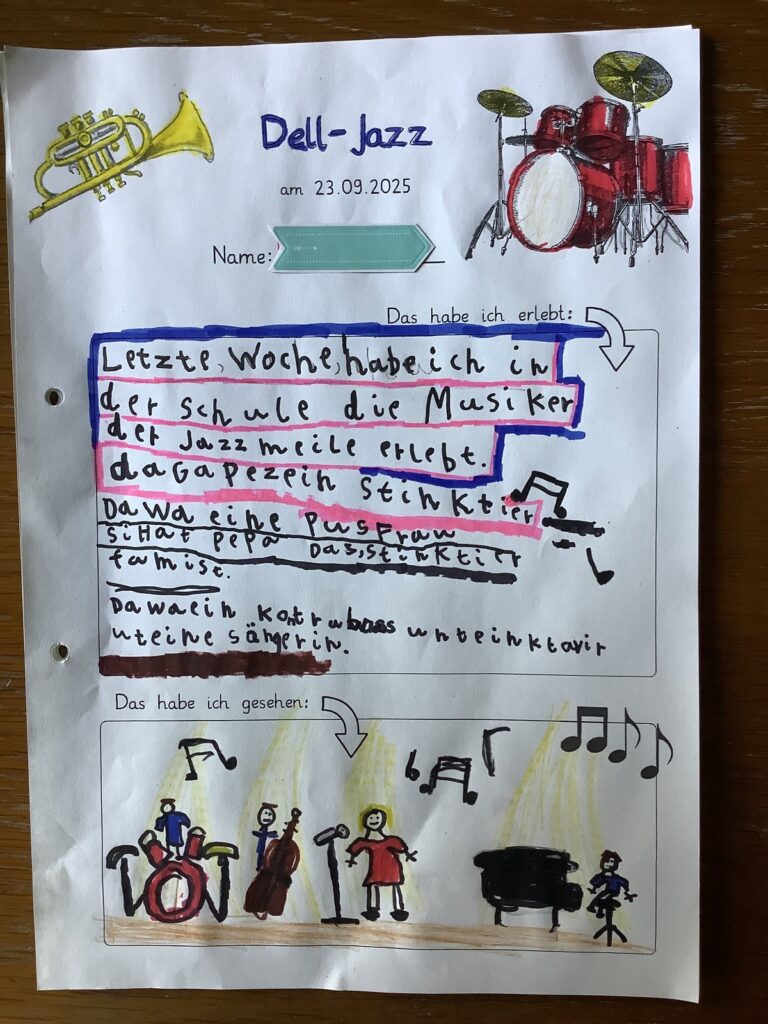 Dell-Jazz
am 23.09.2025
Name:
Das habe ich erlebt:
Letzte, Woche, habe ich in
der Schule die Musiker
der Jazzmeile erlebt.
da Gap ez ein Stinktier
Da wa eine Pusfrau
Si Hat pepa Das, Stinktier
famist.
Dawaein Kontrubass unteinktavir
uteine sängerin.
Das habe ich gesehen: